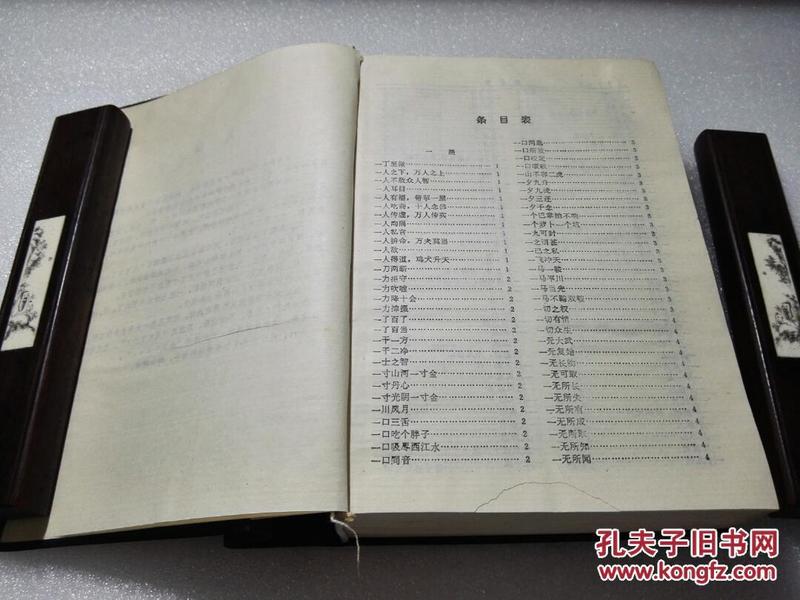 条目表
一 画
一丁至微 1
一人之下，万人之上 1
一人不敌众人智 1
一人耳目 1
一人有福，带挈一屋 1
一人吃斋，十人念佛 1
一人传虚，万人传实 1
一人向隅 1
一人私言 1
一人拚命，万夫莫当 1
一人敌 1
一人得道，鸡犬升天 1
一刀两断 1
一力担守 2
一力吹嘘 2
一力降十会 2
一力撺掇 2
一了百了 2
一了百当 2
一干一方 2
一干二净 2
一士之智 2
一寸山河一寸金 2
一寸丹心 2
一寸光阴一寸金 2
一川风月 2
一口三舌 2
一口吃个胖子 2
一口吸尽西江水 2
一口同音 2
一口两匙 3
一口所敌 3
一口咬定 3
一口道破 3
一山不容二虎 3
一夕九升 3
一夕九徙 3
一夕三迁 3
一夕千念 3
一个巴掌拍不响 3
一个萝卜一个坑 3
一丸可封 3
一之谓甚 3
一己之私 3
一飞冲天 3
一马一鞍 3
一马平川 3
一马当先 3
一马不鞴双鞍 3
一切之权 3
一切有情 4
一切众生 4
一无大武 4
一元复始 4
一无长物 4
一无可取 4
一无所长 4
一无所失 4
一无所有 4
一无所成 4
一无所取 4
一无所知 4
一无所闻 4
孔夫子旧书网
www.kongfz.com